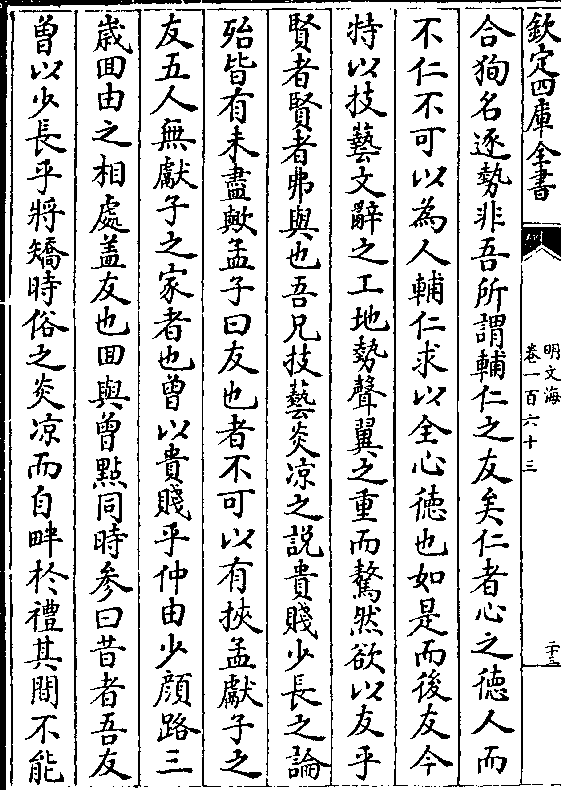 欽定四庫全書
明文海
卷一百六十三
二十三
合狥名逐勢非吾所謂輔仁之友矣仁者心之徳人而
不仁不可以為人輔仁求以全心徳也如是而後友今
特以技藝文辭之工地勢聲翼之重而驁然欲以友乎
賢者賢者弗與也吾兄技藝炎凉之説貴賤少長之論
殆皆有未盡歟孟子曰友也者不可以有挾孟獻子之
友五人無獻子之家者也曾以貴賤乎仲由少顔路三
歲回由之相處盖友也回與曾㸃同時參曰昔者吾友
曾以少長乎將矯時俗之炎凉而自畔於禮其間不能